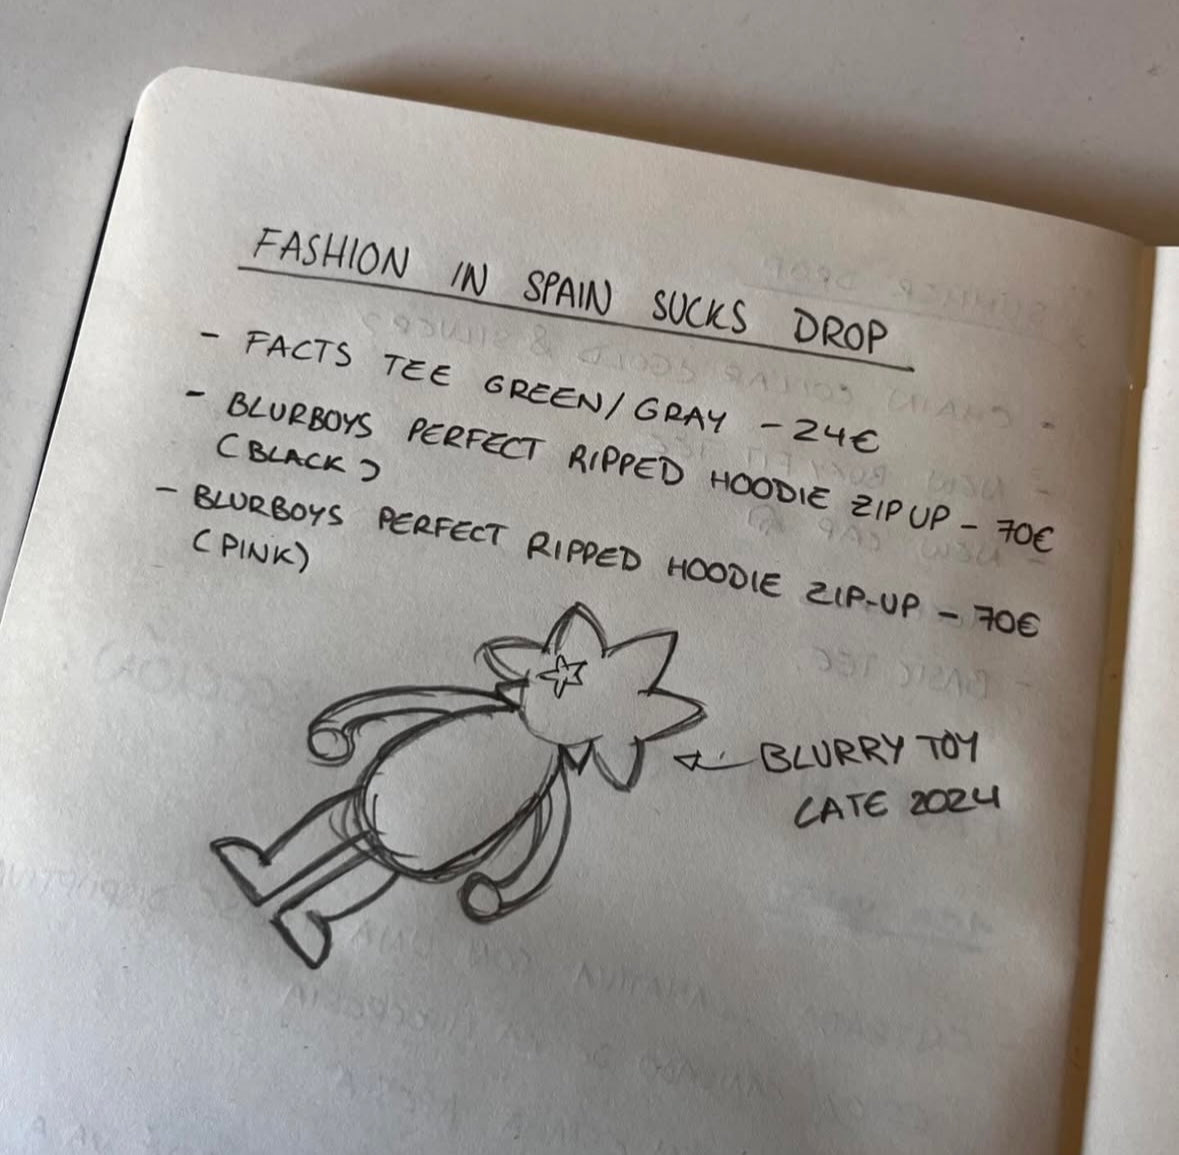 FASHION IN SPAIN SUCKS DROP
- FACTS TEE GREEN/GRAY - 24€
- BLURBOYS PERFECT RIPPED HOODIE ZIP UP - 70€
(BLACK)
- BLURBOYS PERFECT RIPPED HOODIE ZIP-UP - 70€
(PINK)
BLURRY TOY
LATE 2024